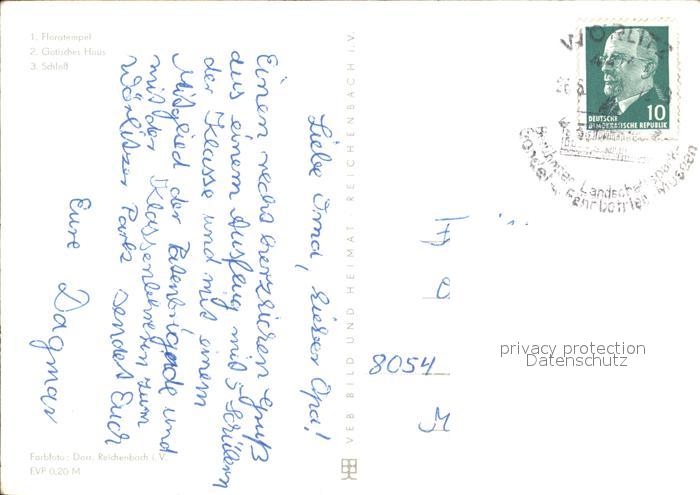 1. Floratempel
2. Gotisches Haus
3. Schloß
Liebe Oma, lieber Opa!
Einen recht herzlichen Gruß
aus einem Ausflug mit 5 Schülern
der Klasse und mit einem
Mitglied der Patenbrigade und
mit der Klassenlehrerin zum
Wörlitzer Park sendet Euch
Eure Dagmar
Farbfoto: Darr, Reichenbach i. V.
EVP 0,20 M
VEB BILD UND HEIMAT REICHENBACH I. V.
WÖRLITZ
DEUTSCHE
DEMOKRATISCHE REPUBLIK
10
Landschaftspark
Gondelfahrten Museen
8054
M
privacy protection
Datenschutz